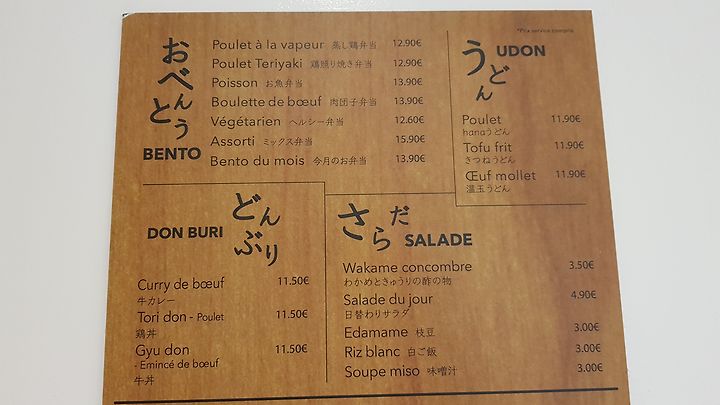 *Prix service compris
おべんとう
BENTO
Poulet à la vapeur 蒸し鶏弁当 12.90€
Poulet Teriyaki 鶏照り焼き弁当 12.90€
Poisson お魚弁当 13.90€
Boulette de bœuf 肉団子弁当 13.90€
Végétarien ヘルシー弁当 12.60€
Assorti ミックス弁当 15.90€
Bento du mois 今月のお弁当 13.90€
うどん
UDON
Poulet 11.90€
hanaうどん
Tofu frit 11.90€
きつねうどん
Œuf mollet 11.90€
温玉うどん
どんぶり
DON BURI
Curry de bœuf 11.50€
牛カレー
Tori don - Poulet 11.50€
鶏丼
Gyu don 11.50€
- Emincé de bœuf
牛丼
さらだ
SALADE
Wakame concombre 3.50€
わかめときゅうりの酢の物
Salade du jour 4.90€
日替わりサラダ
Edamame 枝豆 3.00€
Riz blanc 白ご飯 3.00€
Soupe miso 味噌汁 3.00€